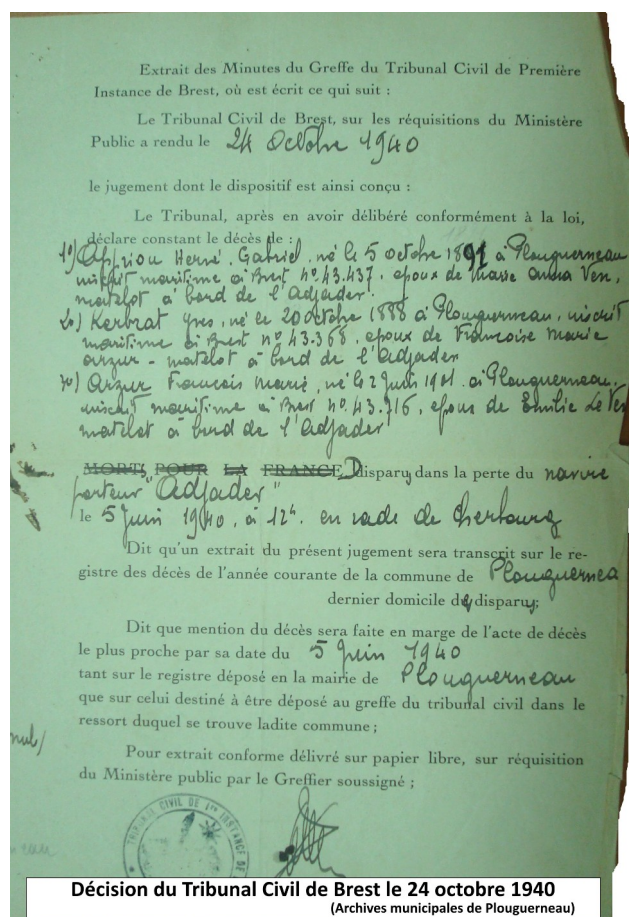 Extrait des Minutes du Greffe du Tribunal Civil de Première
Instance de Brest, où est écrit ce qui suit :
Le Tribunal Civil de Brest, sur les réquisitions du Ministère
Public a rendu le 24 Octobre 1940
le jugement dont le dispositif est ainsi conçu :
Le Tribunal, après en avoir délibéré conformément à la loi,
déclare constant le décès de :
1°) Appriou Hervé Gabriel, né le 5 octobre 1891 à Plouguerneau
inscrit maritime à Brest n° 43.437, époux de Marie Anna Ven,
matelot à bord de l'Adjader.
2°) Kerbrat Yves, né le 20 octobre 1888 à Plouguerneau, inscrit
maritime à Brest n° 43.368, époux de Françoise Marie
Arzur - matelot à bord de l'Adjader
3°) Arzur François Marie, né le 2 Juin 1901 à Plouguerneau,
inscrit maritime à Brest n° 43.716, époux de Emilie Le Ven
matelot à bord de l'Adjader
MORTS POUR LA FRANCE Disparus dans la perte du navire
porteur "Adjader"
le 5 Juin 1940, à 12h. en rade de Cherbourg
Dit qu'un extrait du présent jugement sera transcrit sur le re-
gistre des décès de l'année courante de la commune de Plouguernea
dernier domicile des disparus;
Dit que mention du décès sera faite en marge de l'acte de décès
le plus proche par sa date du 5 Juin 1940
tant sur le registre déposé en la mairie de Plouguerneau
que sur celui destiné à être déposé au greffe du tribunal civil dans le
ressort duquel se trouve ladite commune ;
Pour extrait conforme délivré sur papier libre, sur réquisition
du Ministère public par le Greffier soussigné ;
TRIBUNAL CIVIL DE 1re INSTANCE DE
Décision du Tribunal Civil de Brest le 24 octobre 1940
(Archives municipales de Plouguerneau)